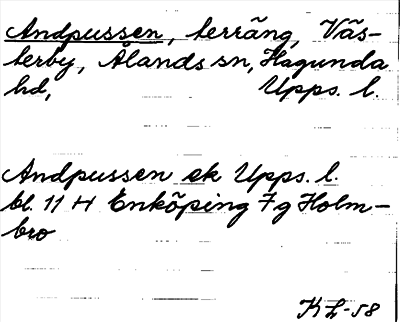 Andpussen, terräng, Väs-
terby, Ålands sn, Hagunda
hd, Upps. l.
Andpussen ek Upps. l.
bl. 11 H Enköping 7 g Holm-
bro
KL-58